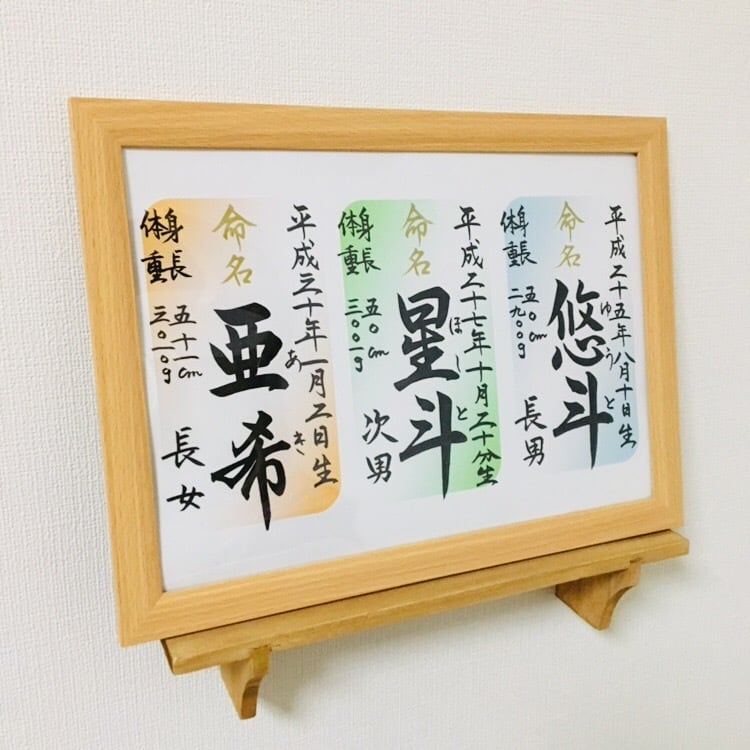 平成二十五年八月十日生
命名
悠斗
ゆうと
長男
身長 五〇cm
体重 二九〇〇g
平成二十七年十月二十分生
命名
星斗
ほしと
次男
身長 五〇cm
体重 三〇〇一g
平成三十年一月二日生
命名
亜希
あき
長女
身長 五十一cm
体重 三〇一〇g